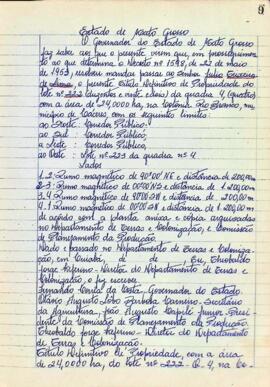 9
Estado de Mato Grosso
O Governador do Estado de Mato Grosso
faz saber aos que o presente virem que, em prosseguimen
to ao que determina o Decreto nº 1598, de 22 de
maio de 1953, resolveu mandar passar ao Senhor Julio
de Lima, o presente Título Definitivo de Propriedade do
lote nº 222 (duzentos e vinte e dois) da quadra 4, (quatro)
com a área de 24,0000 ha, na Colônia Rio Branco, mu
nicípio de Cáceres, com os seguintes limites:
ao Norte: Corredor Público,
ao Sul: Corredor Público,
a Leste: Corredor Público,
ao Oeste: Lote nº 223 da quadra nº 4.
Lados
1.2 Rumo magnético de 90º00' e distância de 200,00m
2-3: Rumo magnético de 00º00' e distância de 1.200,00m
3.4 Rumo magnético de 90º00' e distância de 200,00m
4.1 Rumo magnético de 00º00' e distância de 1.200,00m
de acordo com a planta única e cópia arquivadas
no Departamento de Terras e Colonização, e Comissão
de Planejamento da Produção.
Dado e passado no Departamento de Terras e Coloniza
ção, em Cuiabá, de de Eu,
Jorge Diretor do Departamento de Terras e
Colonização, o fiz escrever
Fernando Corrêa da Costa Governador do Estado.
Augusto Lobo Secretário
da Agricultura. João Augusto Capilé Junior Presi
dente da Comissão de Planejamento da Produção.
Jorge Diretor do Departamento
de Terras e Colonização.
Título Definitivo de Propriedade, com a área
de 24,0000 ha, do lote nº 222 Q. 4, na Co